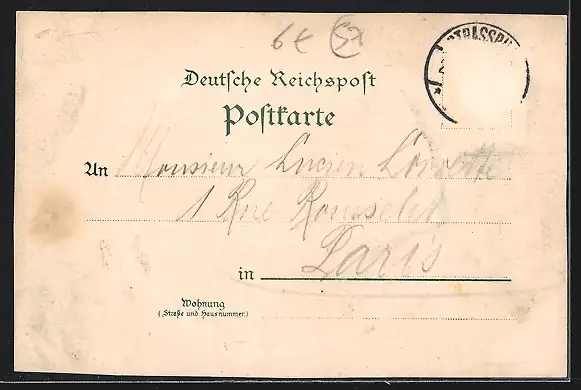 6 € 57
STRASSB
Deutsche Reichspost
Postkarte
An Monsieur Lucien
1 Rue Rousselet
in Paris
Wohnung
(Straße und Hausnummer)